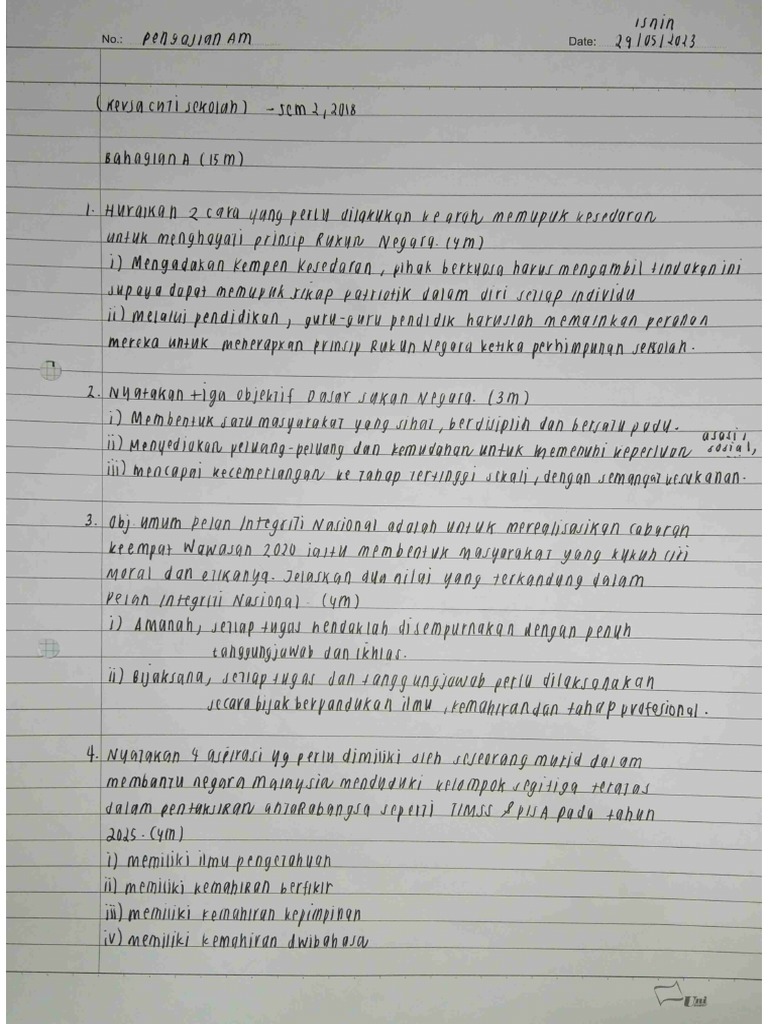 Isnin
No.: Pengajian AM
Date: 29/05/2023
(Kerja cuti sekolah) - sem 2, 2018
Bahagian A (15m)
1. Huraikan 2 cara yang perlu dilakukan ke arah memupuk kesedaran
untuk menghayati prinsip Rukun Negara. (4m)
i) Mengadakan kempen kesedaran, pihak berkuasa harus mengambil tindakan ini
supaya dapat memupuk sikap patriotik dalam diri setiap individu
ii) melalui pendidikan, guru-guru pendidik haruslah memainkan peranan
mereka untuk menerapkan prinsip Rukun Negara ketika perhimpunan sekolah.
2. Nyatakan tiga objektif Dasar sukan Negara. (3m)
i) Membentuk satu masyarakat yang sihat, berdisiplin dan bersatu padu.
ii) Menyediakan peluang-peluang dan kemudahan untuk memenuhi keperluan asasi, sosial,
iii) mencapai kecemerlangan ke tahap tertinggi sekali, dengan semangat kesukanan.
3. Obj umum Pelan Integriti Nasional adalah untuk merealisasikan cabaran
keempat Wawasan 2020 iaitu membentuk masyarakat yang kukuh ciri
moral dan etikanya. Jelaskan dua nilai yang terkandung dalam
Pelan Integriti Nasional. (4m)
i) Amanah, setiap tugas hendaklah disempurnakan dengan penuh
tanggungjawab dan ikhlas.
ii) Bijaksana, setiap tugas dan tanggungjawab perlu dilaksanakan
secara bijak berpandukan ilmu, kemahiran dan tahap profesional.
4. Nyatakan 4 aspirasi yg perlu dimiliki oleh seseorang murid dalam
membantu negara Malaysia menduduki kelompok segitiga teratas
dalam pentaksiran antarabangsa seperti TIMSS & PISA pada tahun
2025. (4m)
i) memiliki ilmu pengetahuan
ii) memiliki kemahiran berfikir
iii) memiliki kemahiran kepimpinan
iv) memiliki kemahiran dwibahasa